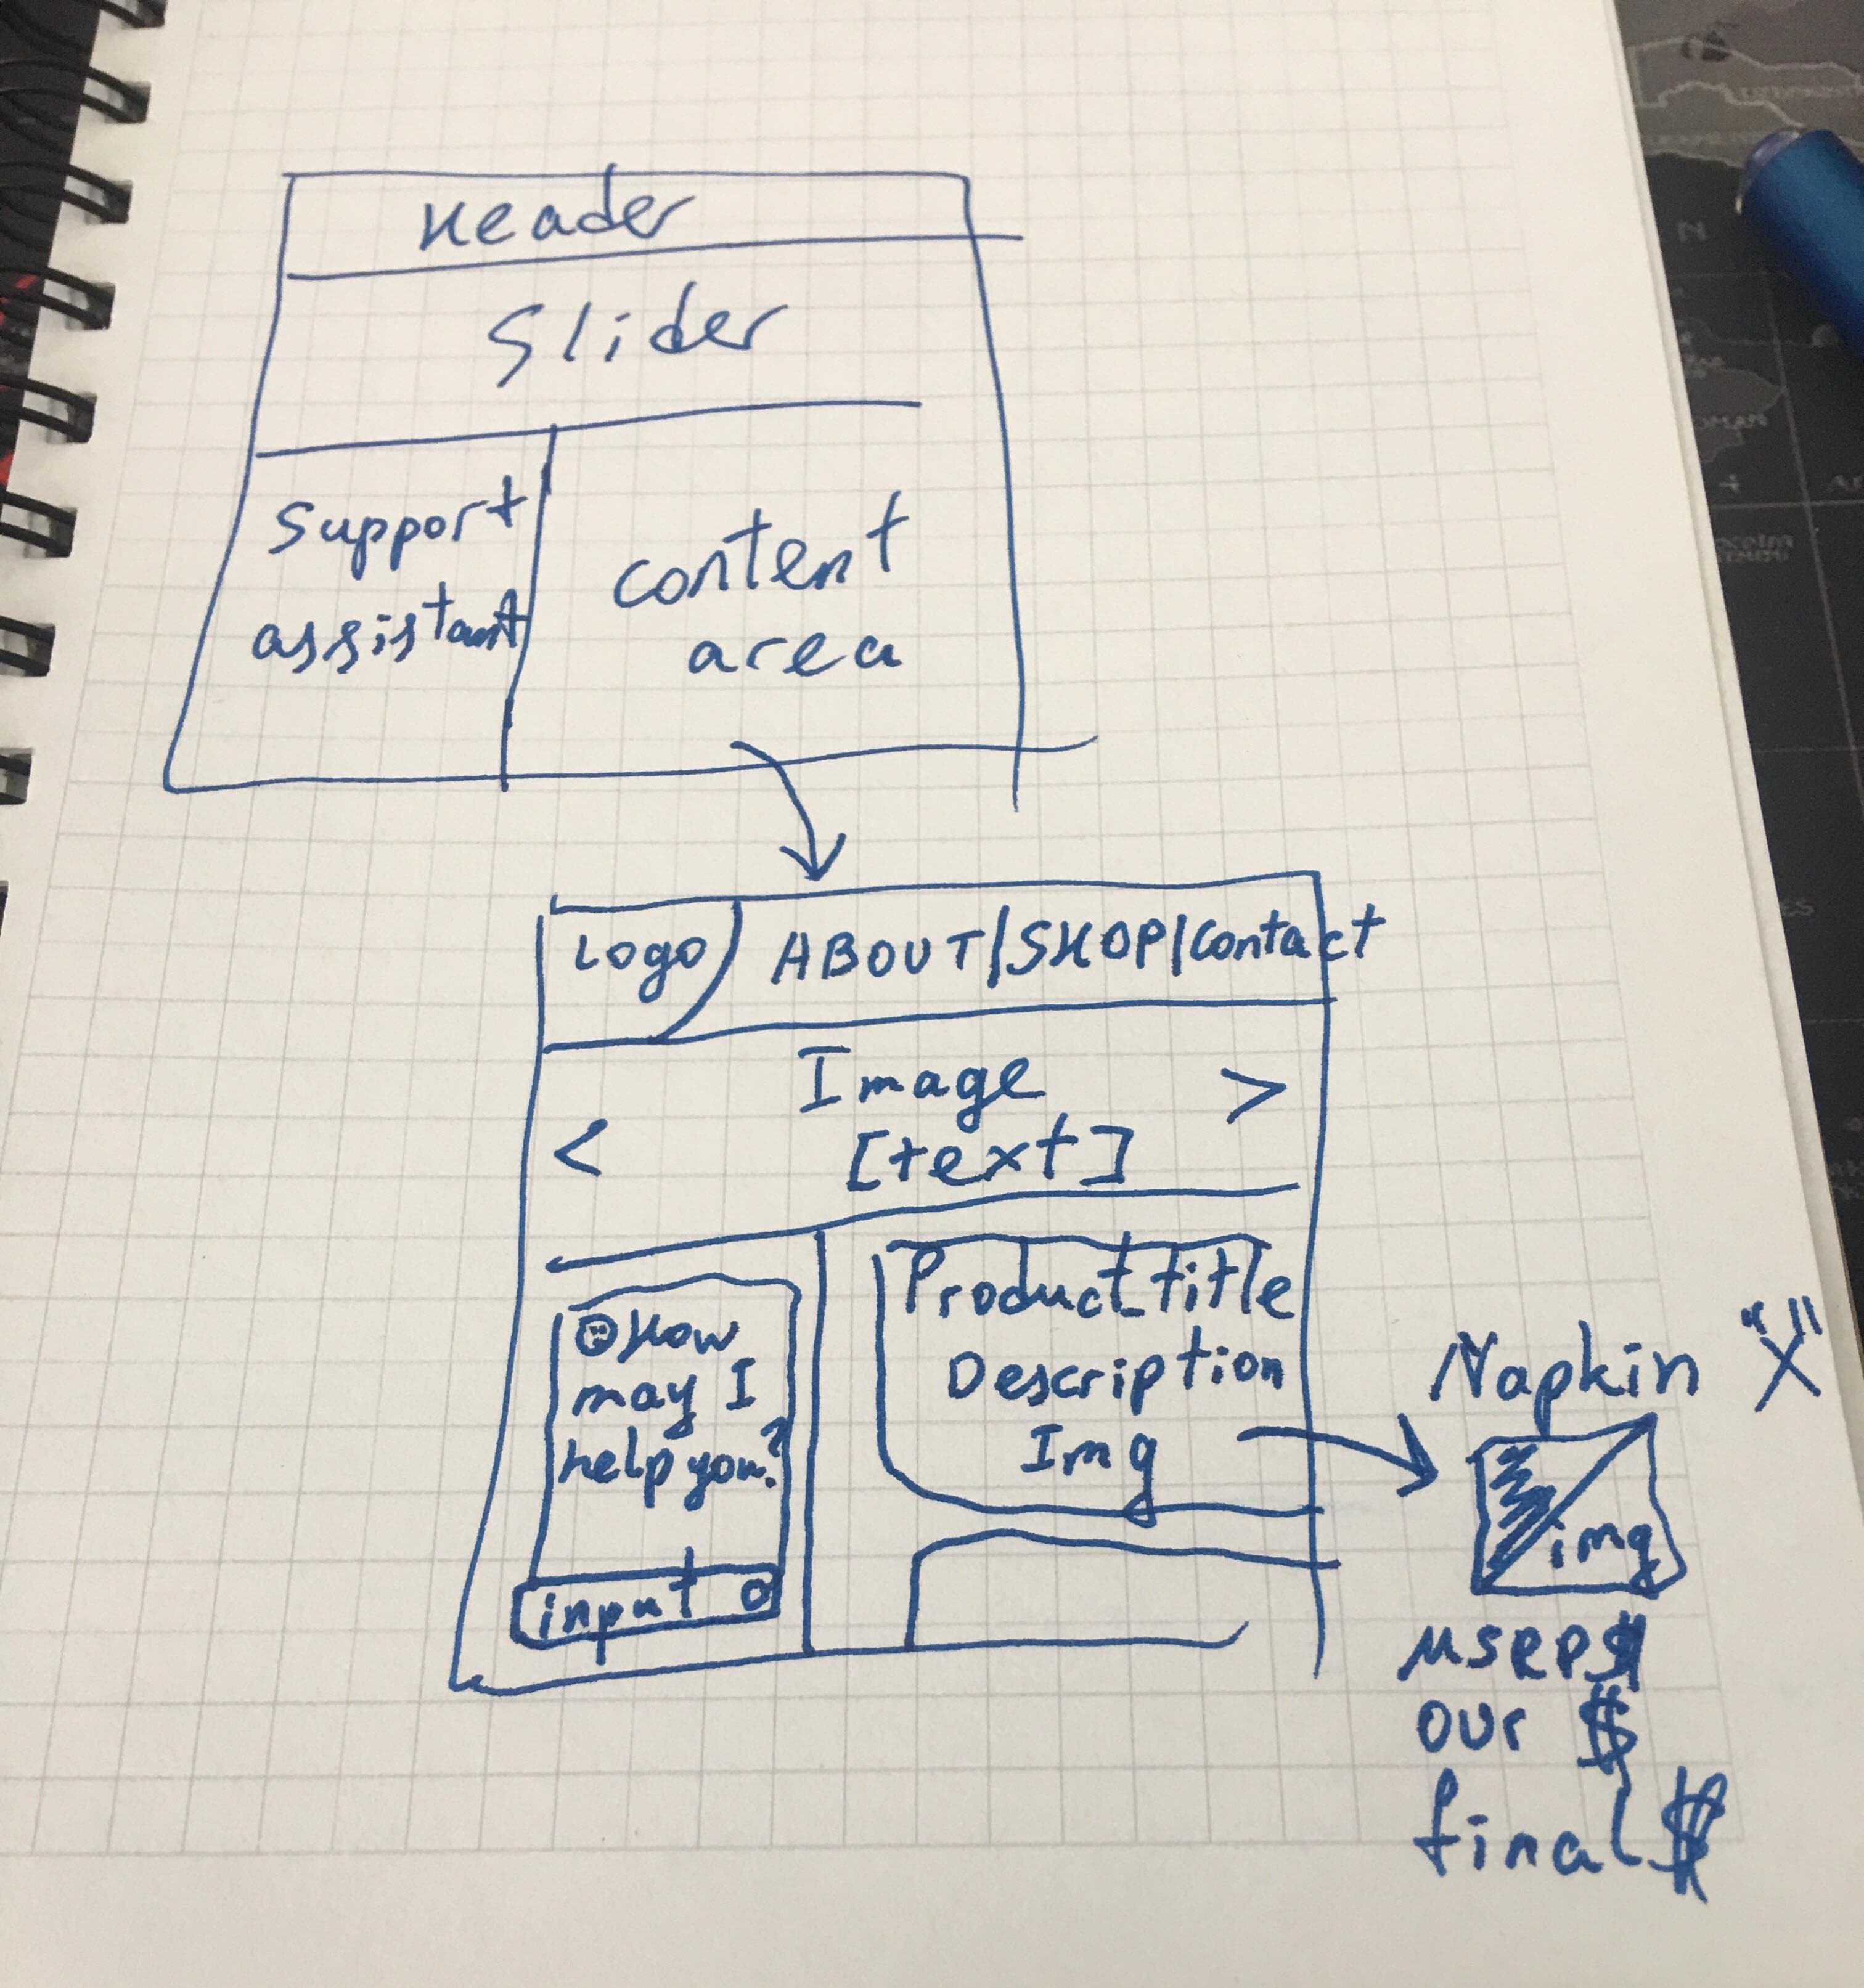 Header
Slider
Support
assistant
content
area
Logo
ABOUT/SHOP/Contact
Image
< >
[text]
Product title
Description
Img
How
may I
help you?
input
Napkin "X"
img
MSRP$
our $
final $